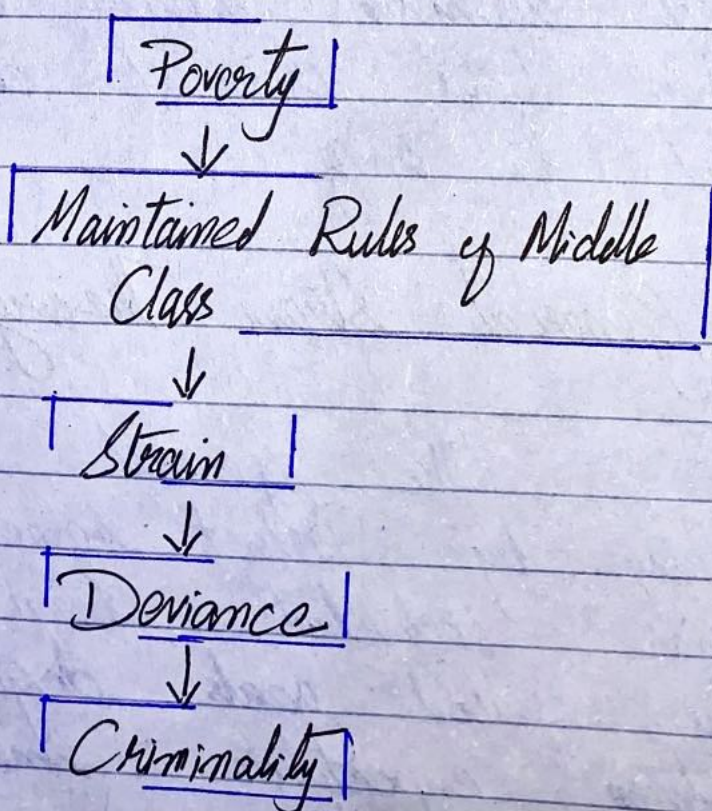 Poverty
↓
Maintained Rules of Middle
Class
↓
Strain
↓
Deviance
↓
Criminality